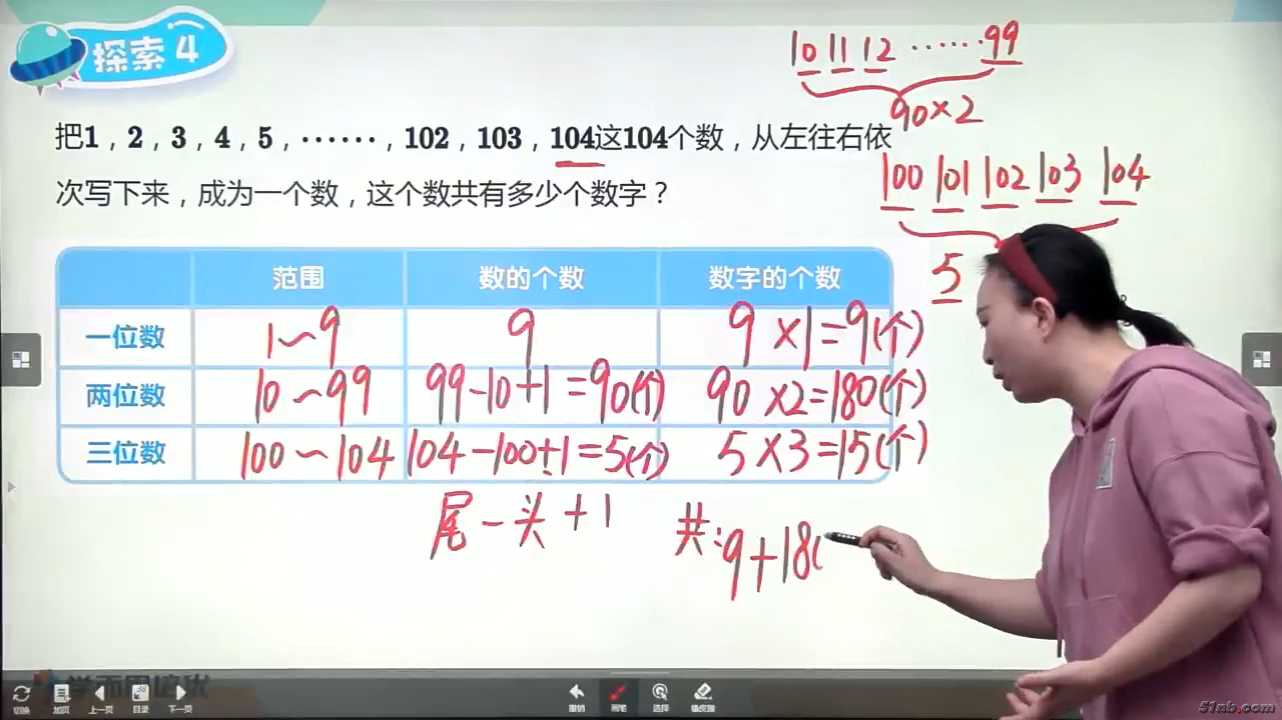 探索 4
10 11 12 ······ 99
90×2
把1，2，3，4，5，······，102，103，104这104个数，从左往右依
次写下来，成为一个数，这个数共有多少个数字？
100 101 102 103 104
5
范围 数的个数 数字的个数
一位数 1~9 9 9×1=9(个)
两位数 10~99 99-10+1=90(个) 90×2=180(个)
三位数 100~104 104-100+1=5(个) 5×3=15(个)
尾-头+1
共:9+18
切换 加页 上一页 目录 下一页 撤销 画笔 选择 橡皮擦
51nb.com